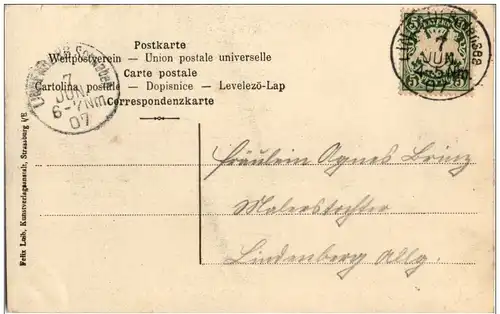 Postkarte
Weltpostverein — Union postale universelle
Carte postale
Cartolina postale — Dopisnice — Levelező-Lap
Correspondenzkarte
7
JUN.
6-7Nm
07
BAYERN
5
5
7
JUN.
07
Fräulein Agnes Brinz
Malerstochter
Lindenberg Allg.
Felix Luib, Kunstverlagsanstalt, Strassburg i/E